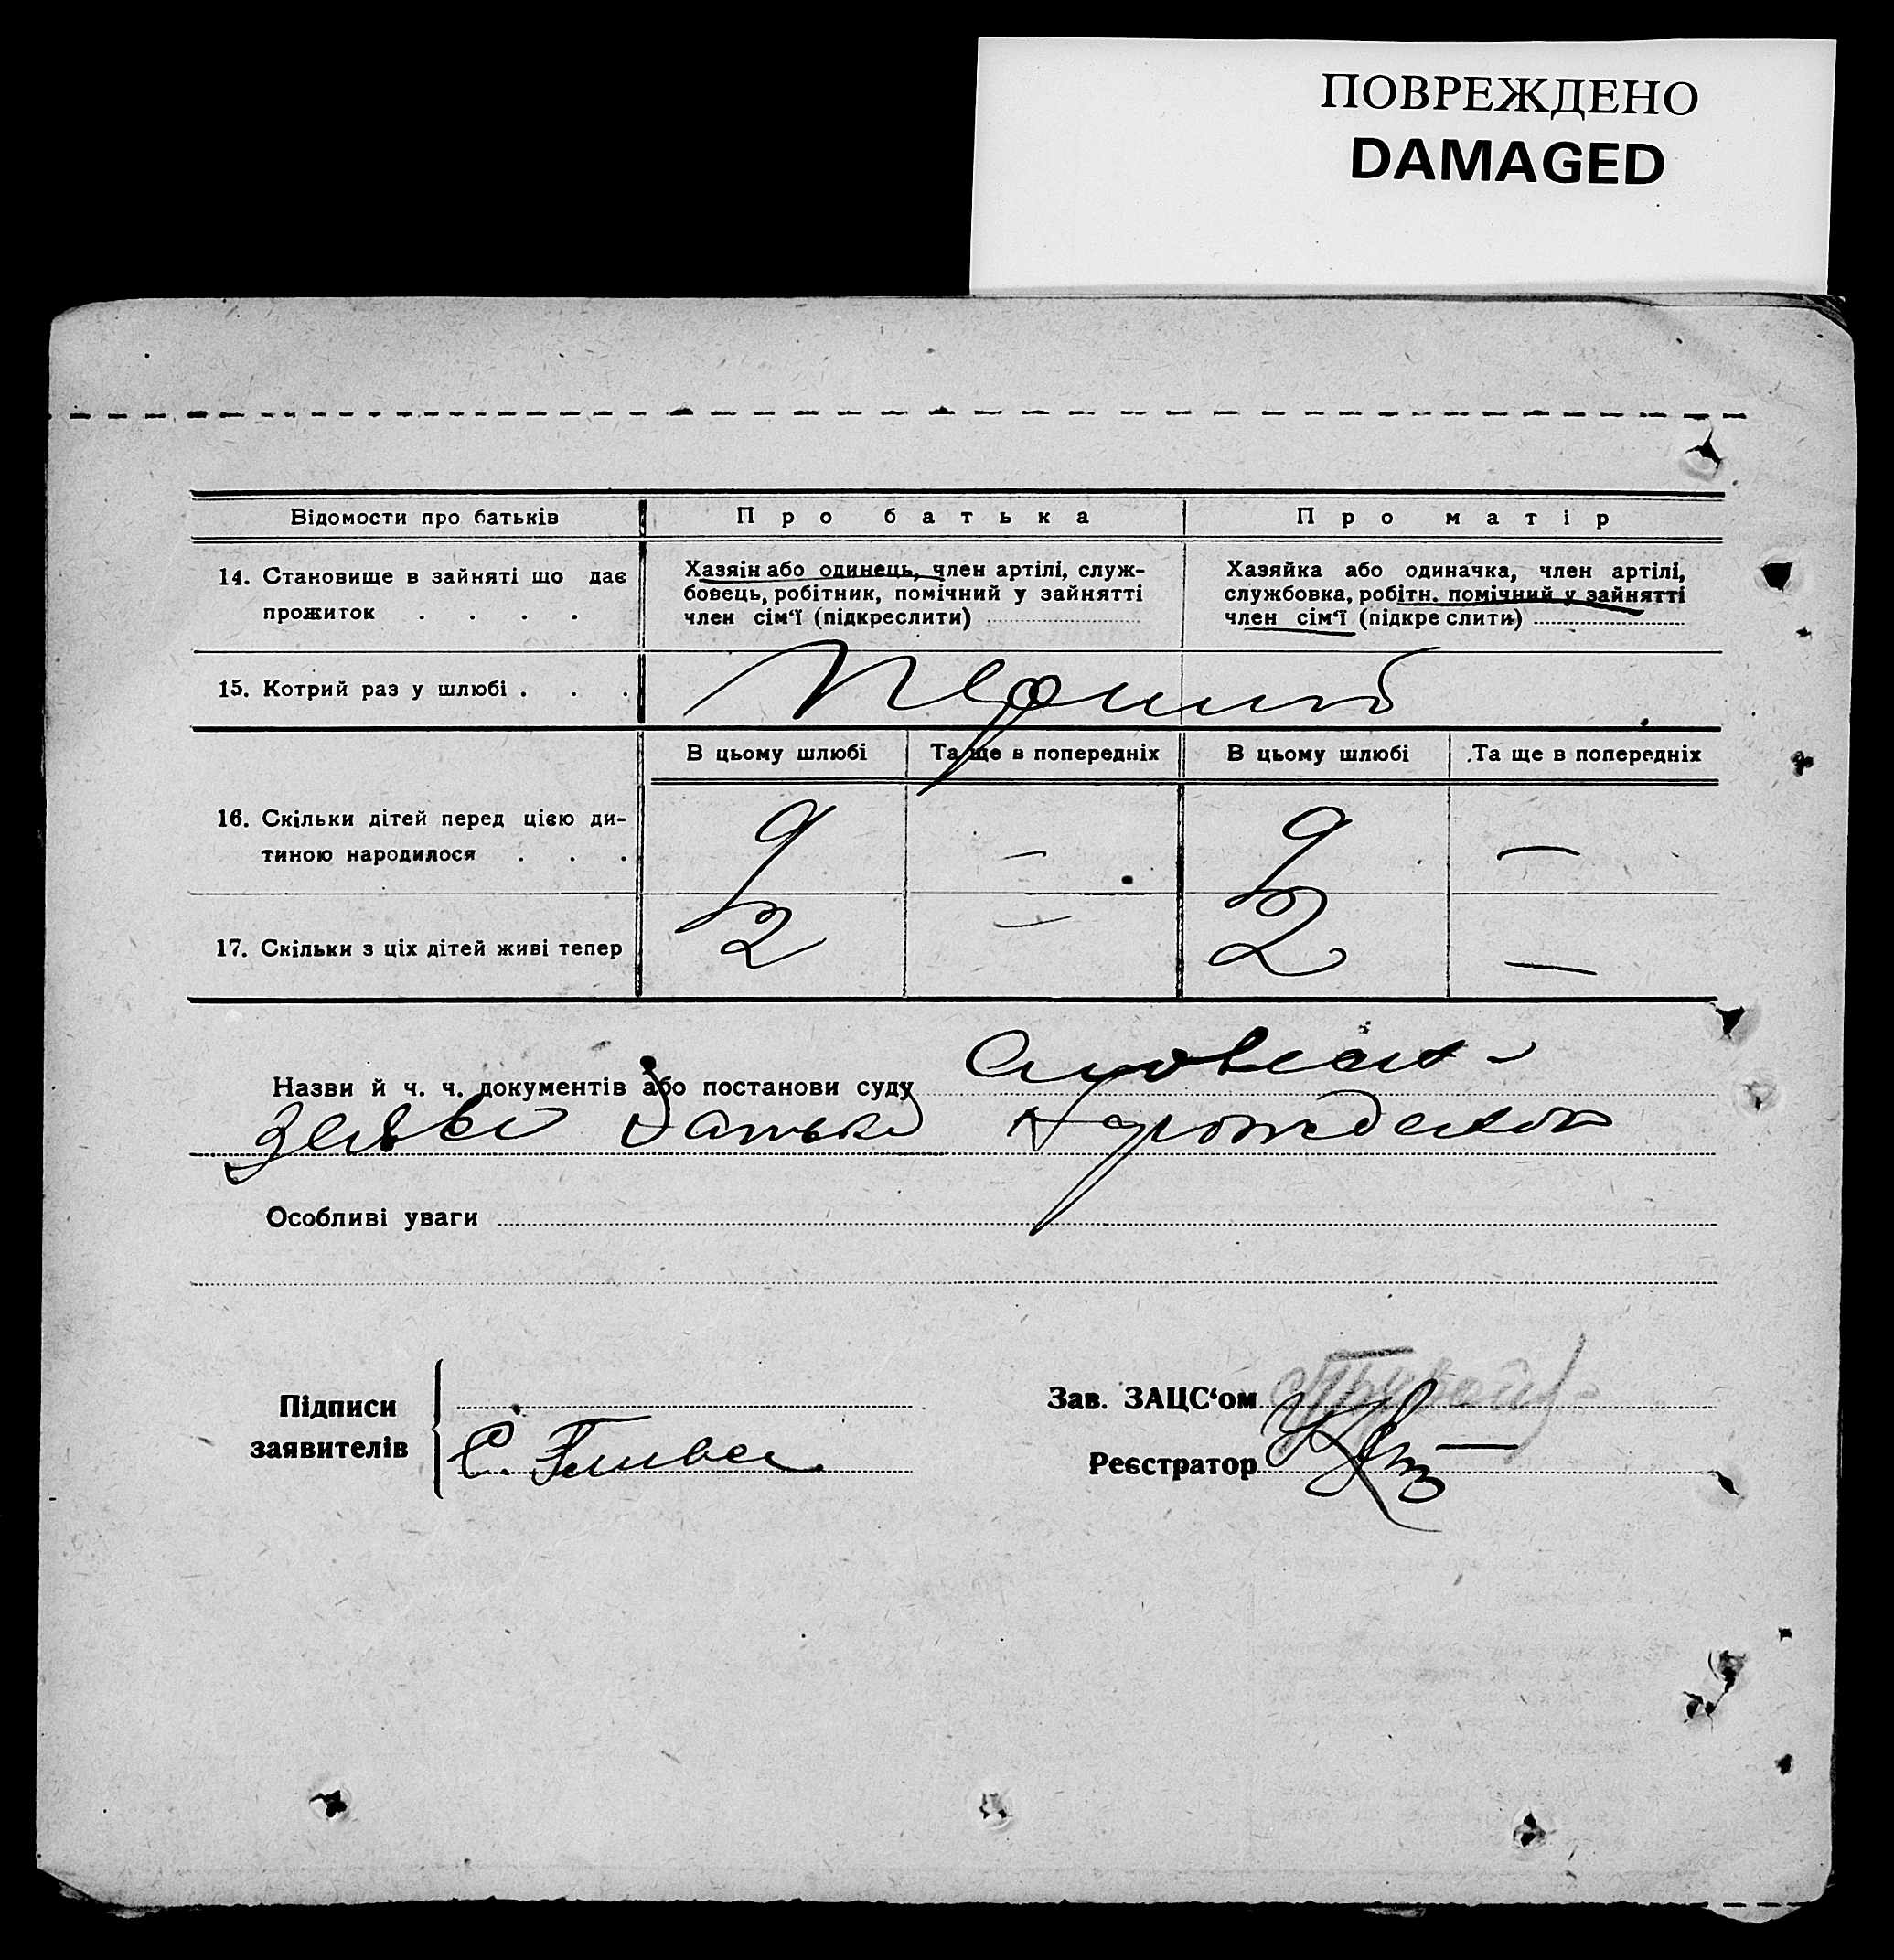 ПОВРЕЖДЕНО
DAMAGED
Відомости про батьків
Про батька
Про матір
14. Становище в зайняті що дає
прожиток . . . .
Хазяін або одинець, член артілі, служ-
бовець, робітник, помічний у зайнятті
член сім‘ї (підкреслити)
Хазяйка або одиначка, член артілі,
службовка, робітн. помічний у зайнятті
член сім‘ї (підкре слити)
15. Котрий раз у шлюбі . . .
Перший
В цьому шлюбі
Та ще в попередніх
В цьому шлюбі
Та ще в попередніх
16. Скільки дітей перед цією ди-
тиною народилося . . .
9 — 9 —
17. Скільки з ціх дітей живі тепер
2 — 2 —
Назви й ч. ч. документів або постанови суду
батька
Особливі уваги
Підписи
заявителів
С.
Зав. ЗАЦС‘ом
Реєстратор